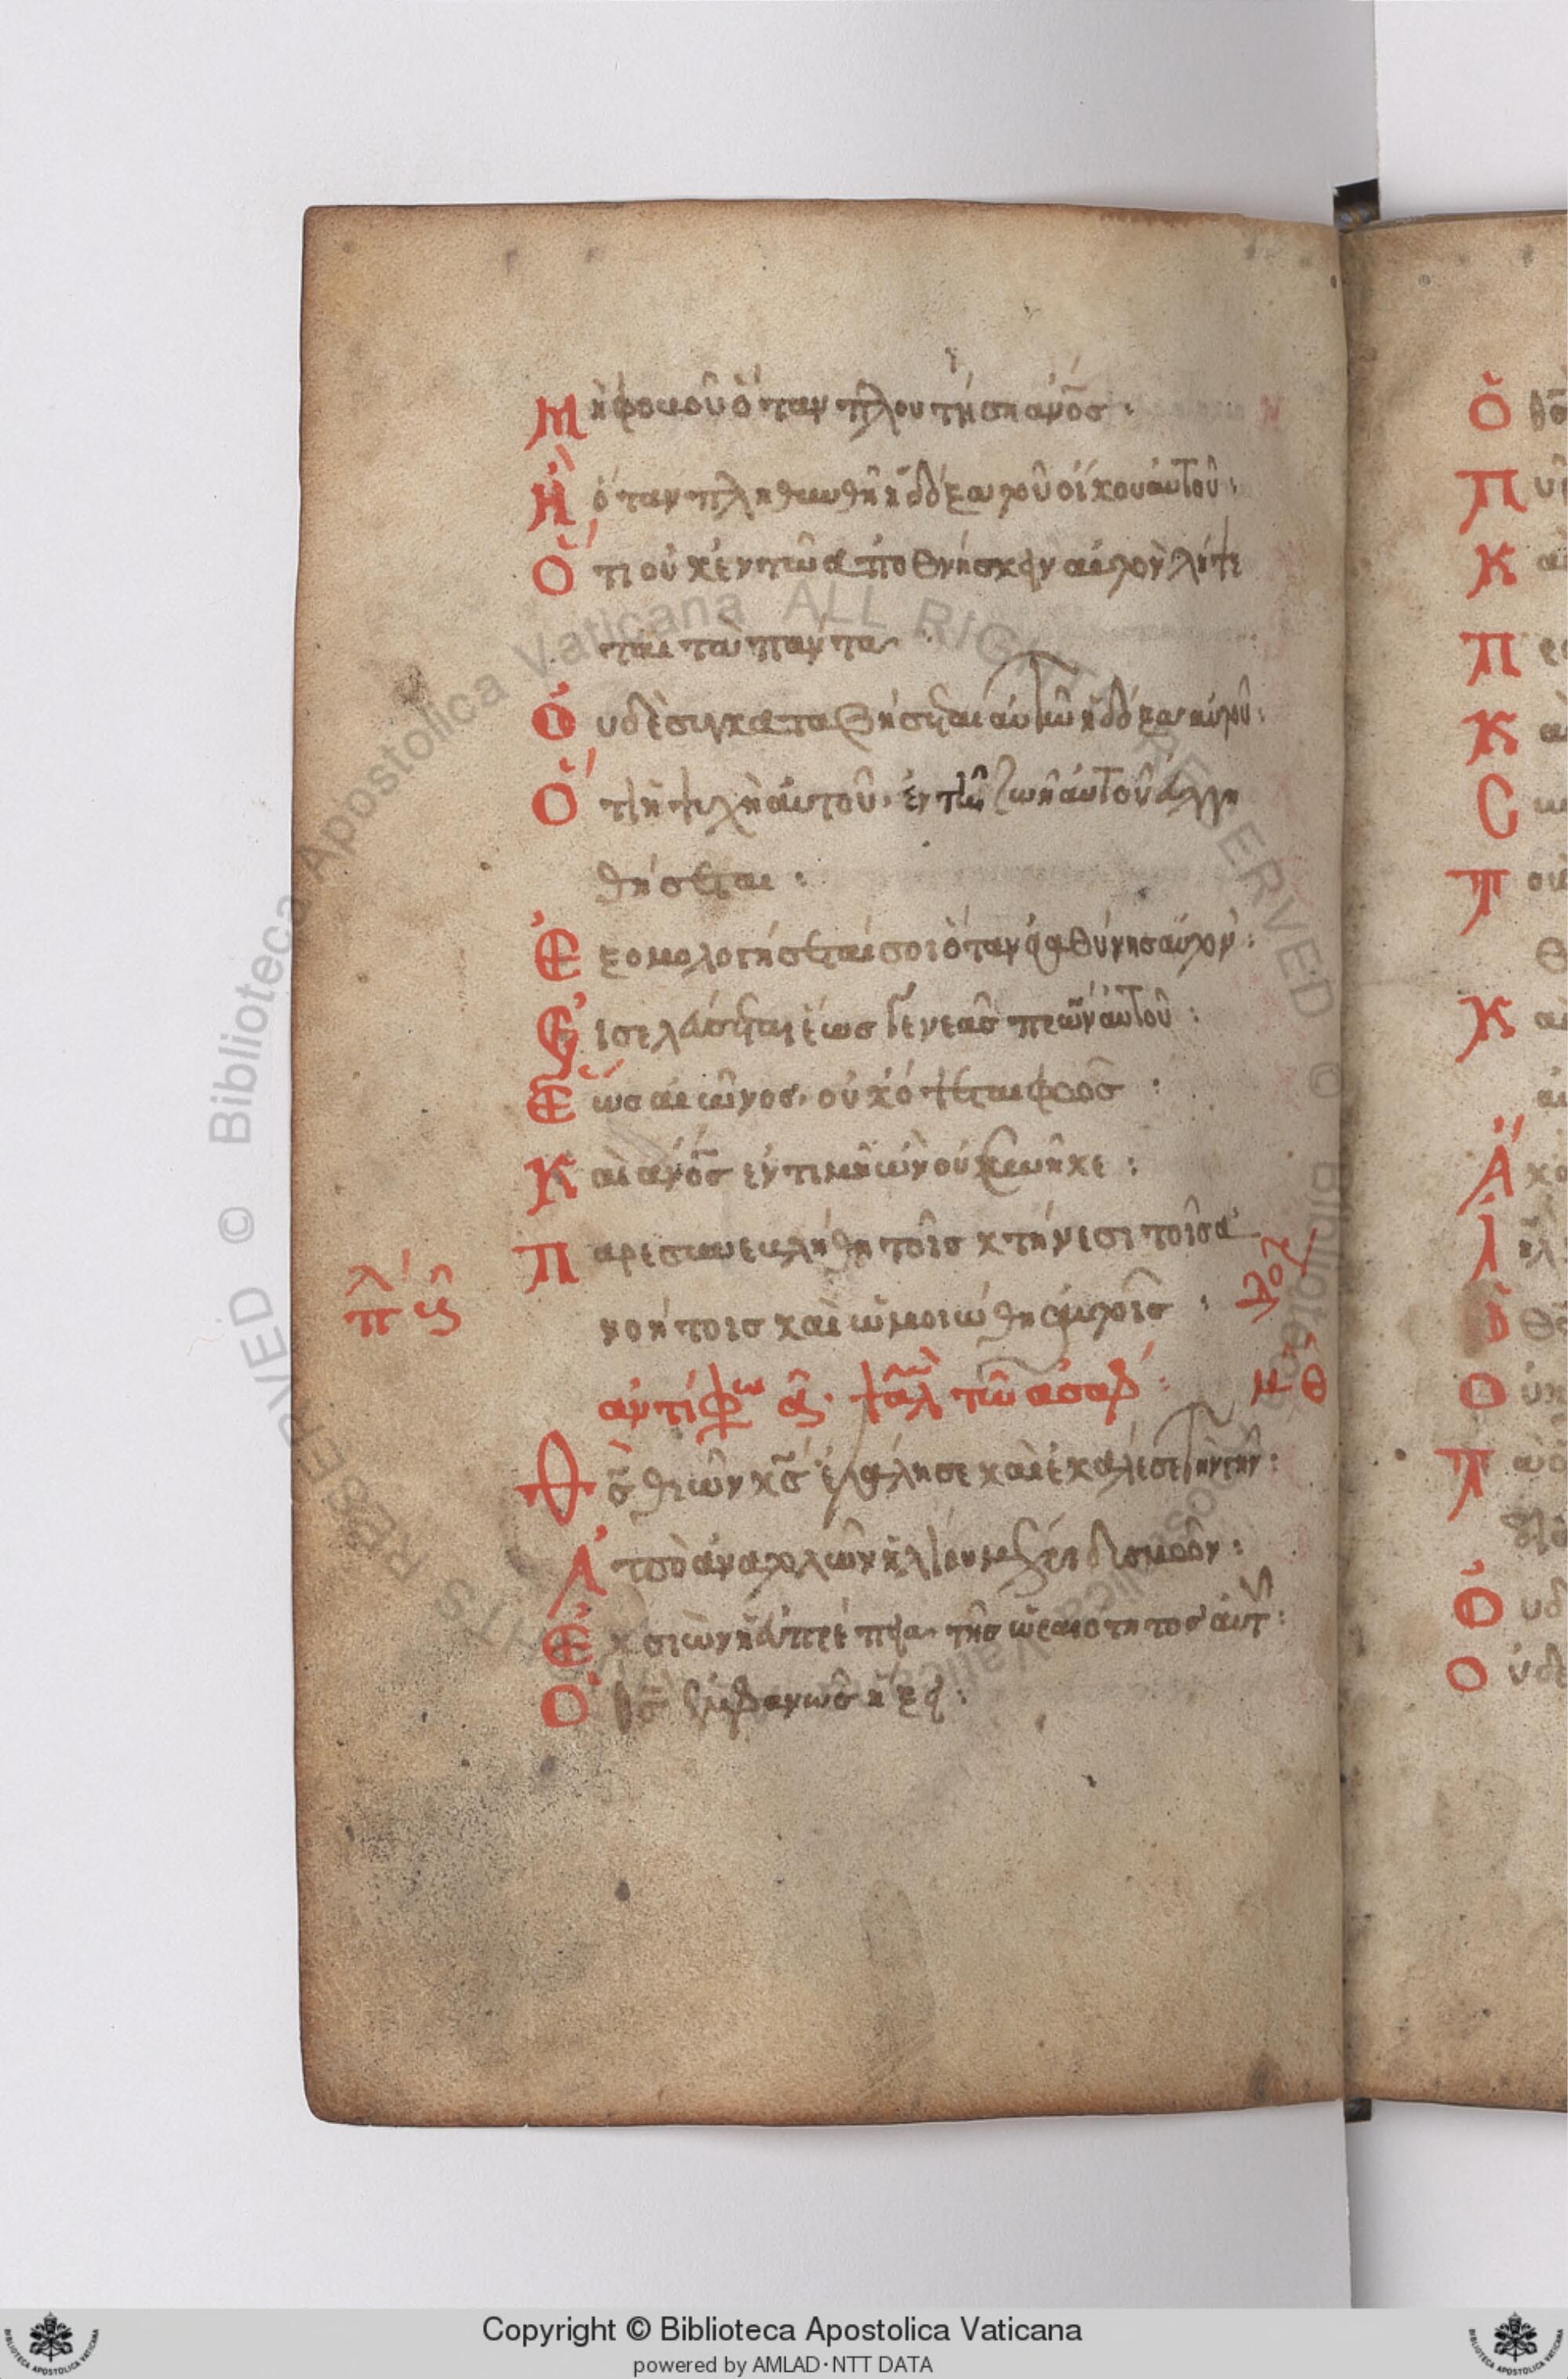 Μὴ φοβοῦ ὅταν πλουτήση ἀνος:
Ἢ ὅταν πληθυνθῆ ἡ δόξα τοῦ οἴκου αὐτοῦ:
Ὅτι οὐκ ἐν τῶ ἀποθνήσκειν αὐτὸν λήψε
ται τὰ πάντα
Οὐδὲ συγκαταβήσεται αὐτῶ ἡ δόξα αὐτοῦ:
Ὅτι ἡ ψυχὴ αὐτοῦ. ἐν τῆ ζωῆ αὐτοῦ εὐλογη
θήσεται:
Ἐξομολογήσεταί σοι ὅταν ἀγαθύνης αὐτόν:
Εἰσελεύσεται ἕως γενεᾶς πρων αὐτοῦ:
Ἕως αἰῶνος. οὐκ ὄψεται φῶς:
Καὶ ἀνος ἐν τιμῆ ὢν οὐ συνῆκε:
Παρεσυνεβλήθη τοῖς κτήνεσι τοῖς ἀ
νοήτοις καὶ ὡμοιώθη αὐτοῖς:
ἀντίφω ψαλ τῶ ἀσάφ:
μθ
Θς θεῶν κς ἐλάλησε καὶ ἐκάλεσε τὴν γῆν:
Ἀπὸ ἀνατολῶν ἡλίου μέχρι δυσμῶν:
Ἐκ σιὼν ἡ εὐπρέπεια τῆς ὡραιότητος αὐτ:
Ὁ θς ἐμφανῶς ἥξει:
Copyright © Biblioteca Apostolica Vaticana
powered by AMLAD·NTT DATA